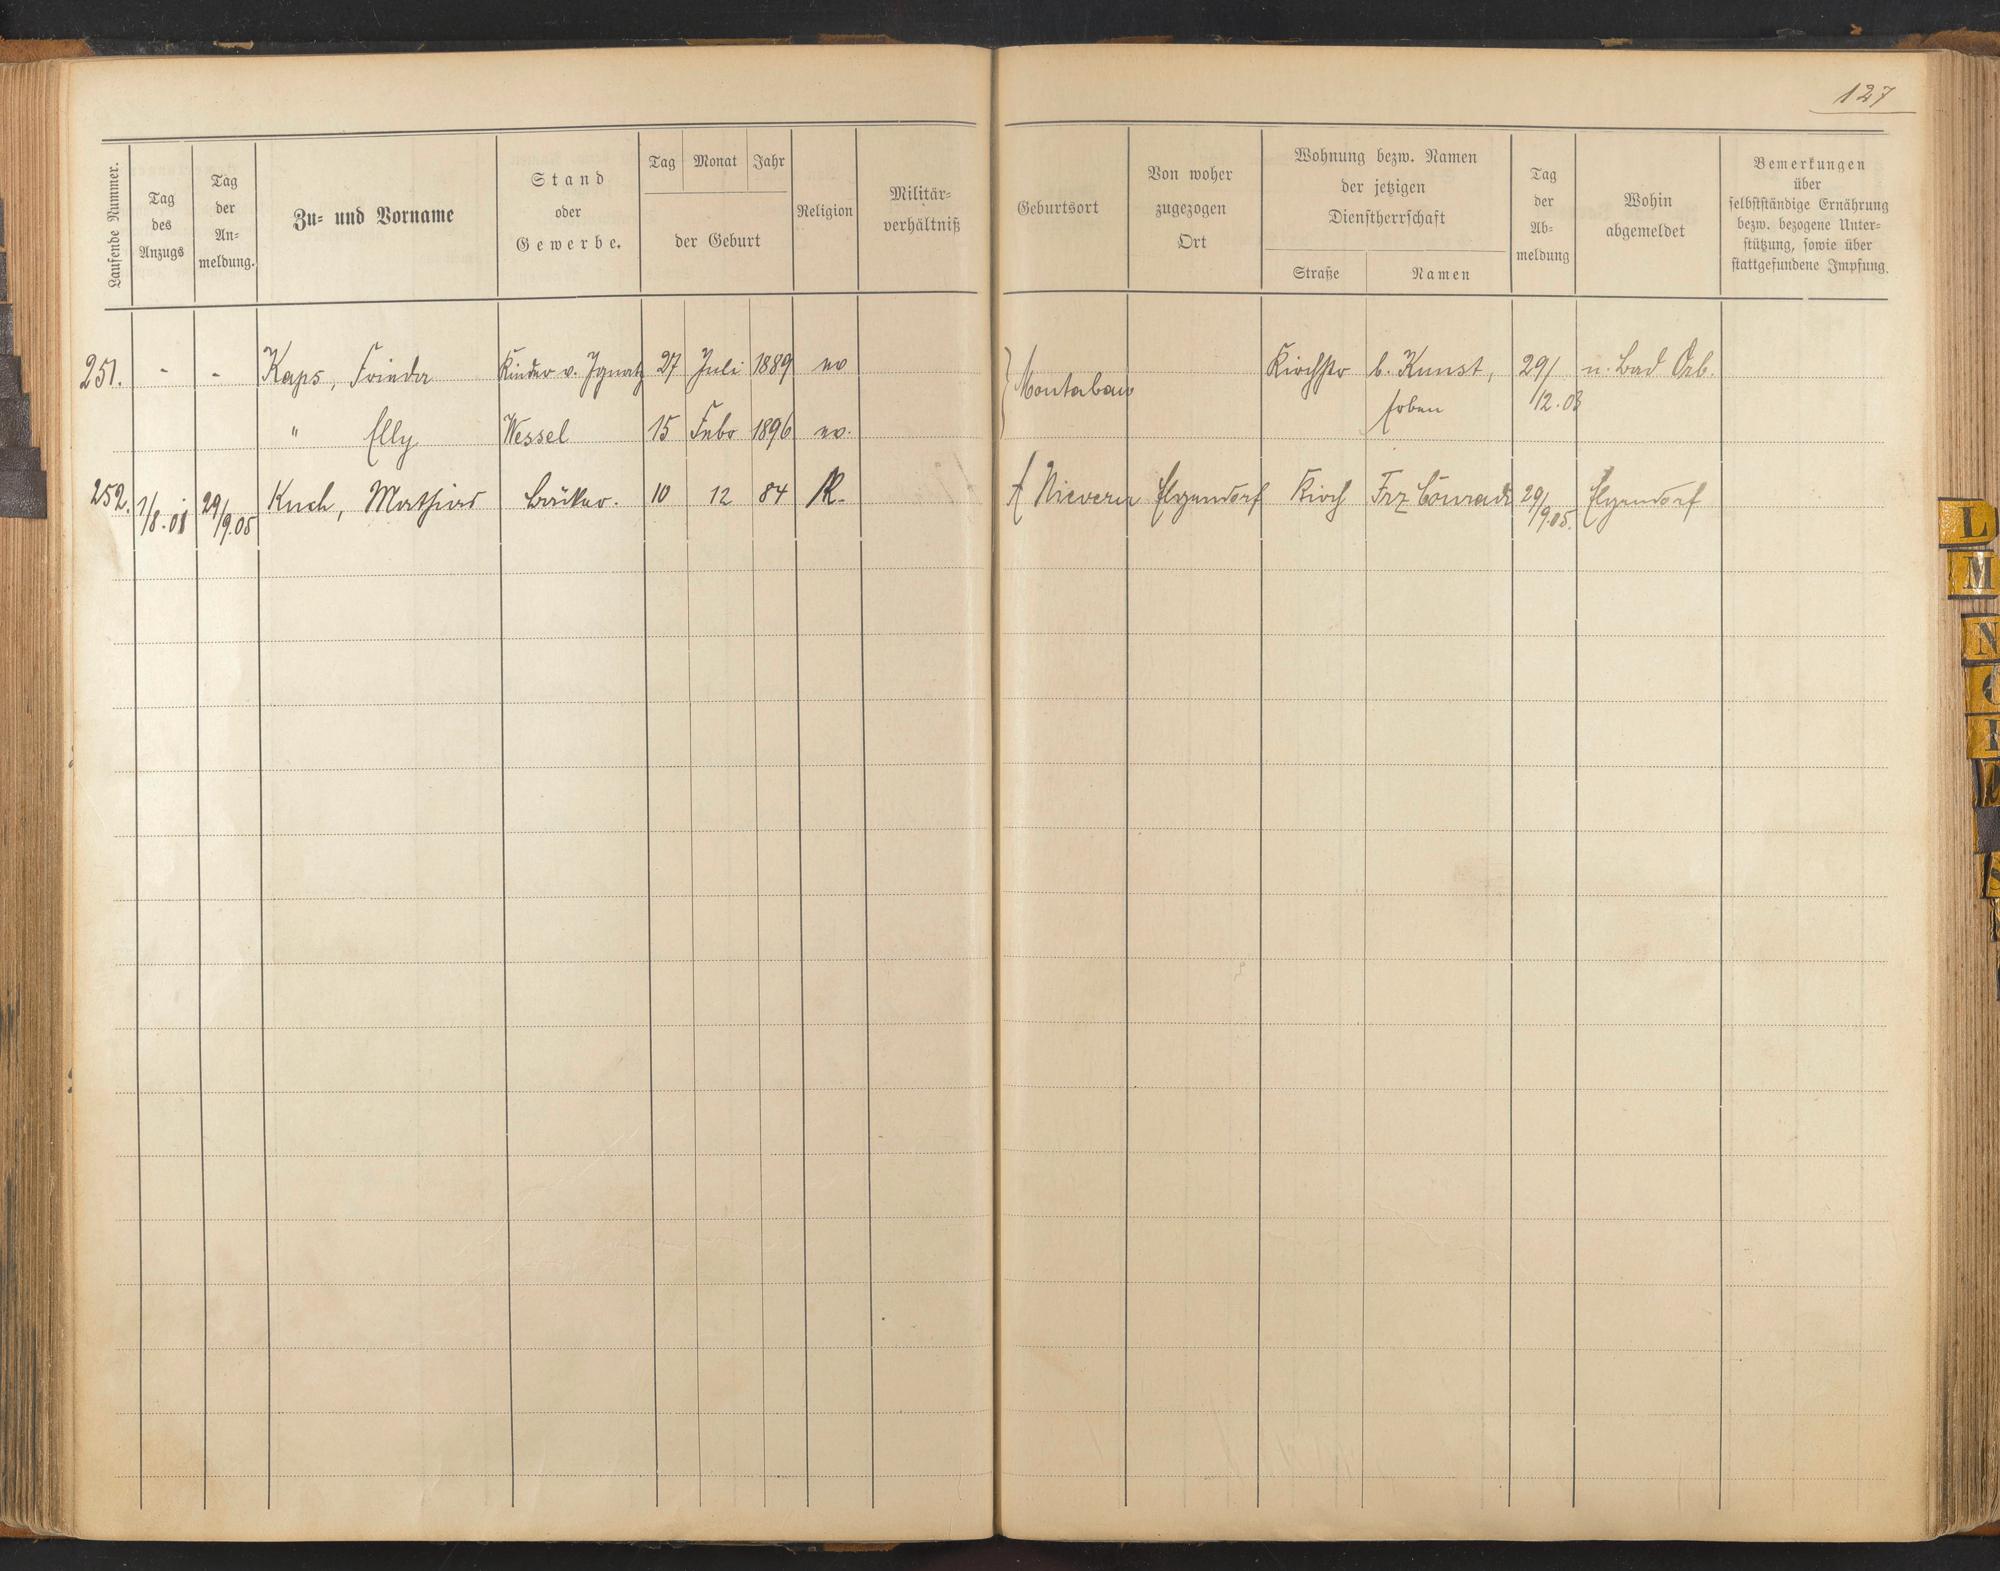 127
Laufende Nummer.
Tag des Anzugs
Tag der An- meldung.
Zu- und Vorname
Stand oder Gewerbe.
Tag Monat Jahr
der Geburt
Religion
Militär- verhältniß
Geburtsort
Von woher zugezogen Ort
Wohnung bezw. Namen der jetzigen Dienstherrschaft
Straße Namen
Tag der Ab- meldung
Wohin abgemeldet
Bemerkungen über selbstständige Ernährung bezw. bezogene Unter- stützung, sowie über stattgefundene Impfung.
251. - - Kaps, Frieda Kinder v. Ignatz 27 Juli 1889 ev Montabaur Kirchstr b. Kunst, 29/12.03 n. Bad Orb.
" Elly Wessel 15 Febr 1896 ev.
252. 1/8.01 29/9.05 Kuch, Mathias Bäcker. 10 12 84 K. Nievern Elgendorf Kirch Frz Conradi 29/9.05. Elgendorf
L
M
N